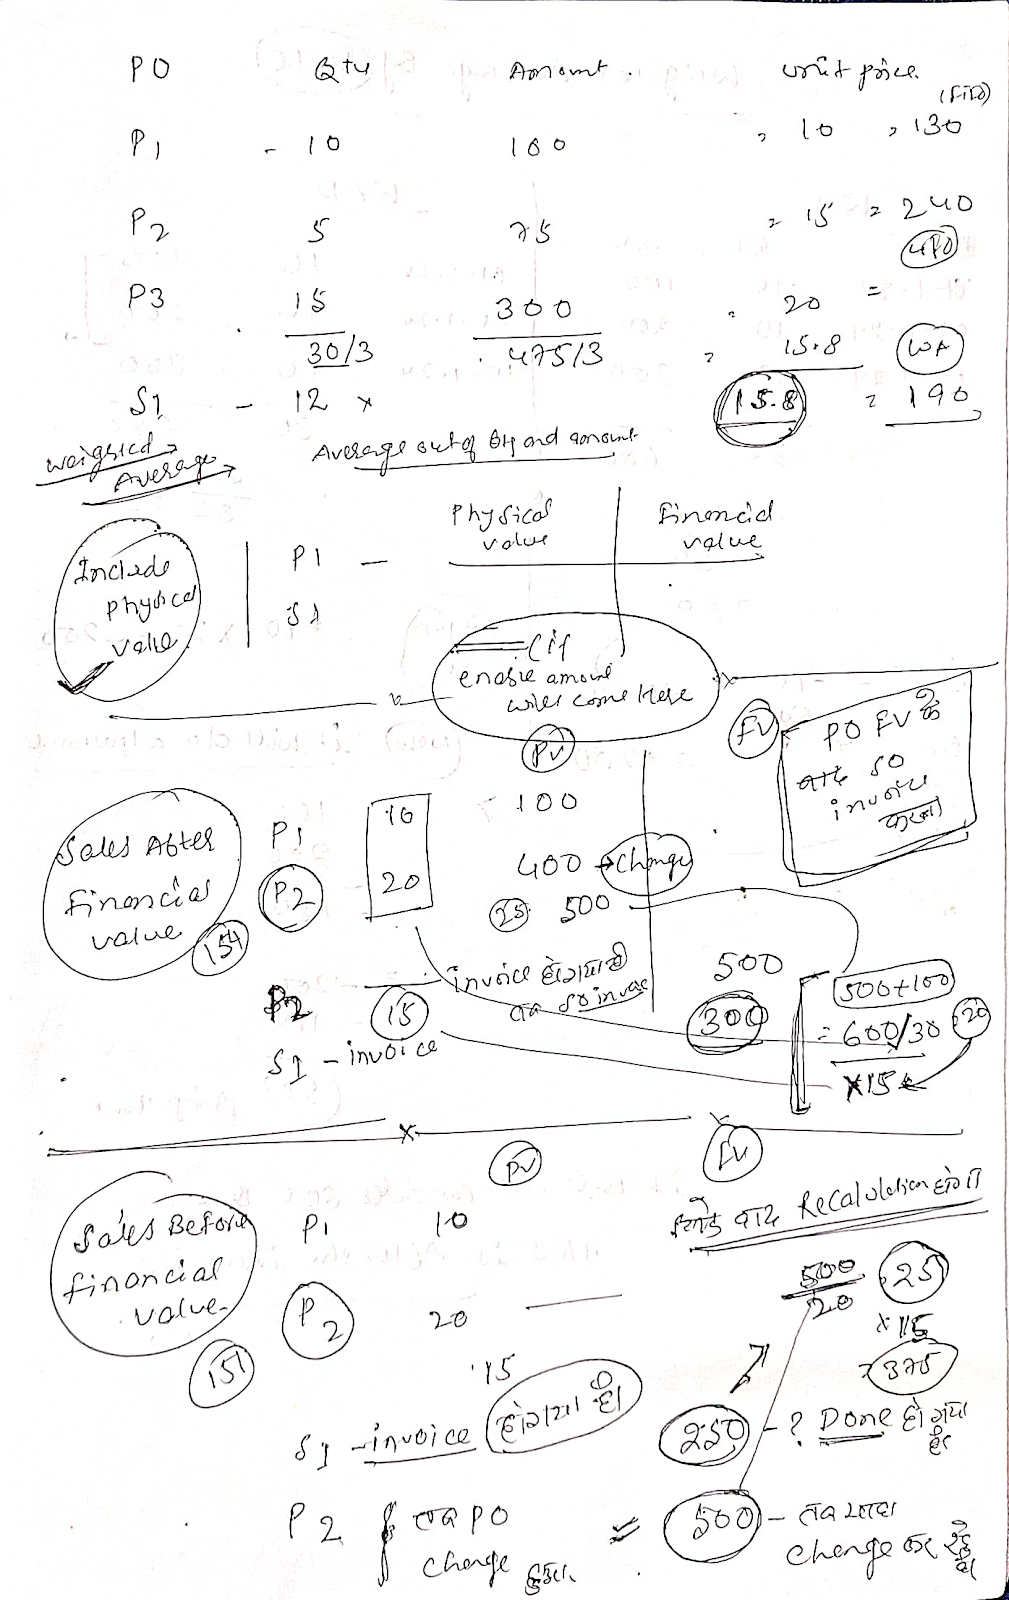 PO Qty Amount. Unit price
(fifo)
P1 - 10 100 , 10 , 130
P2 5 75 = 15 = 240
P3 15 300 , 20 =
30/3 475/3 , 15.8 WA
S1 - 12 × 15.8 = 190
Average out of qty and amount
Average
Physical value Financial value
Include Physical value
P1 -
S1
(if enable amount will come Here
PV FV
PO FV के बाद SO invoice करना
Sales After Financial value 154
P1 10 100
P2 20 400 → Change
25 500
invoice होगया है तब SO
P2 15 500
300
500+100
= 600/30 20
×15
S1 - invoice
PV FV
Sales Before financial value. 151
P1 10
बाद Recalculation होगा
P2 20
500/20 25
×15
= 375
15
S1 - invoice होगया है
250 - ? Done हो गया है
P2 तब PO change हुआ
500 - change कर रहे